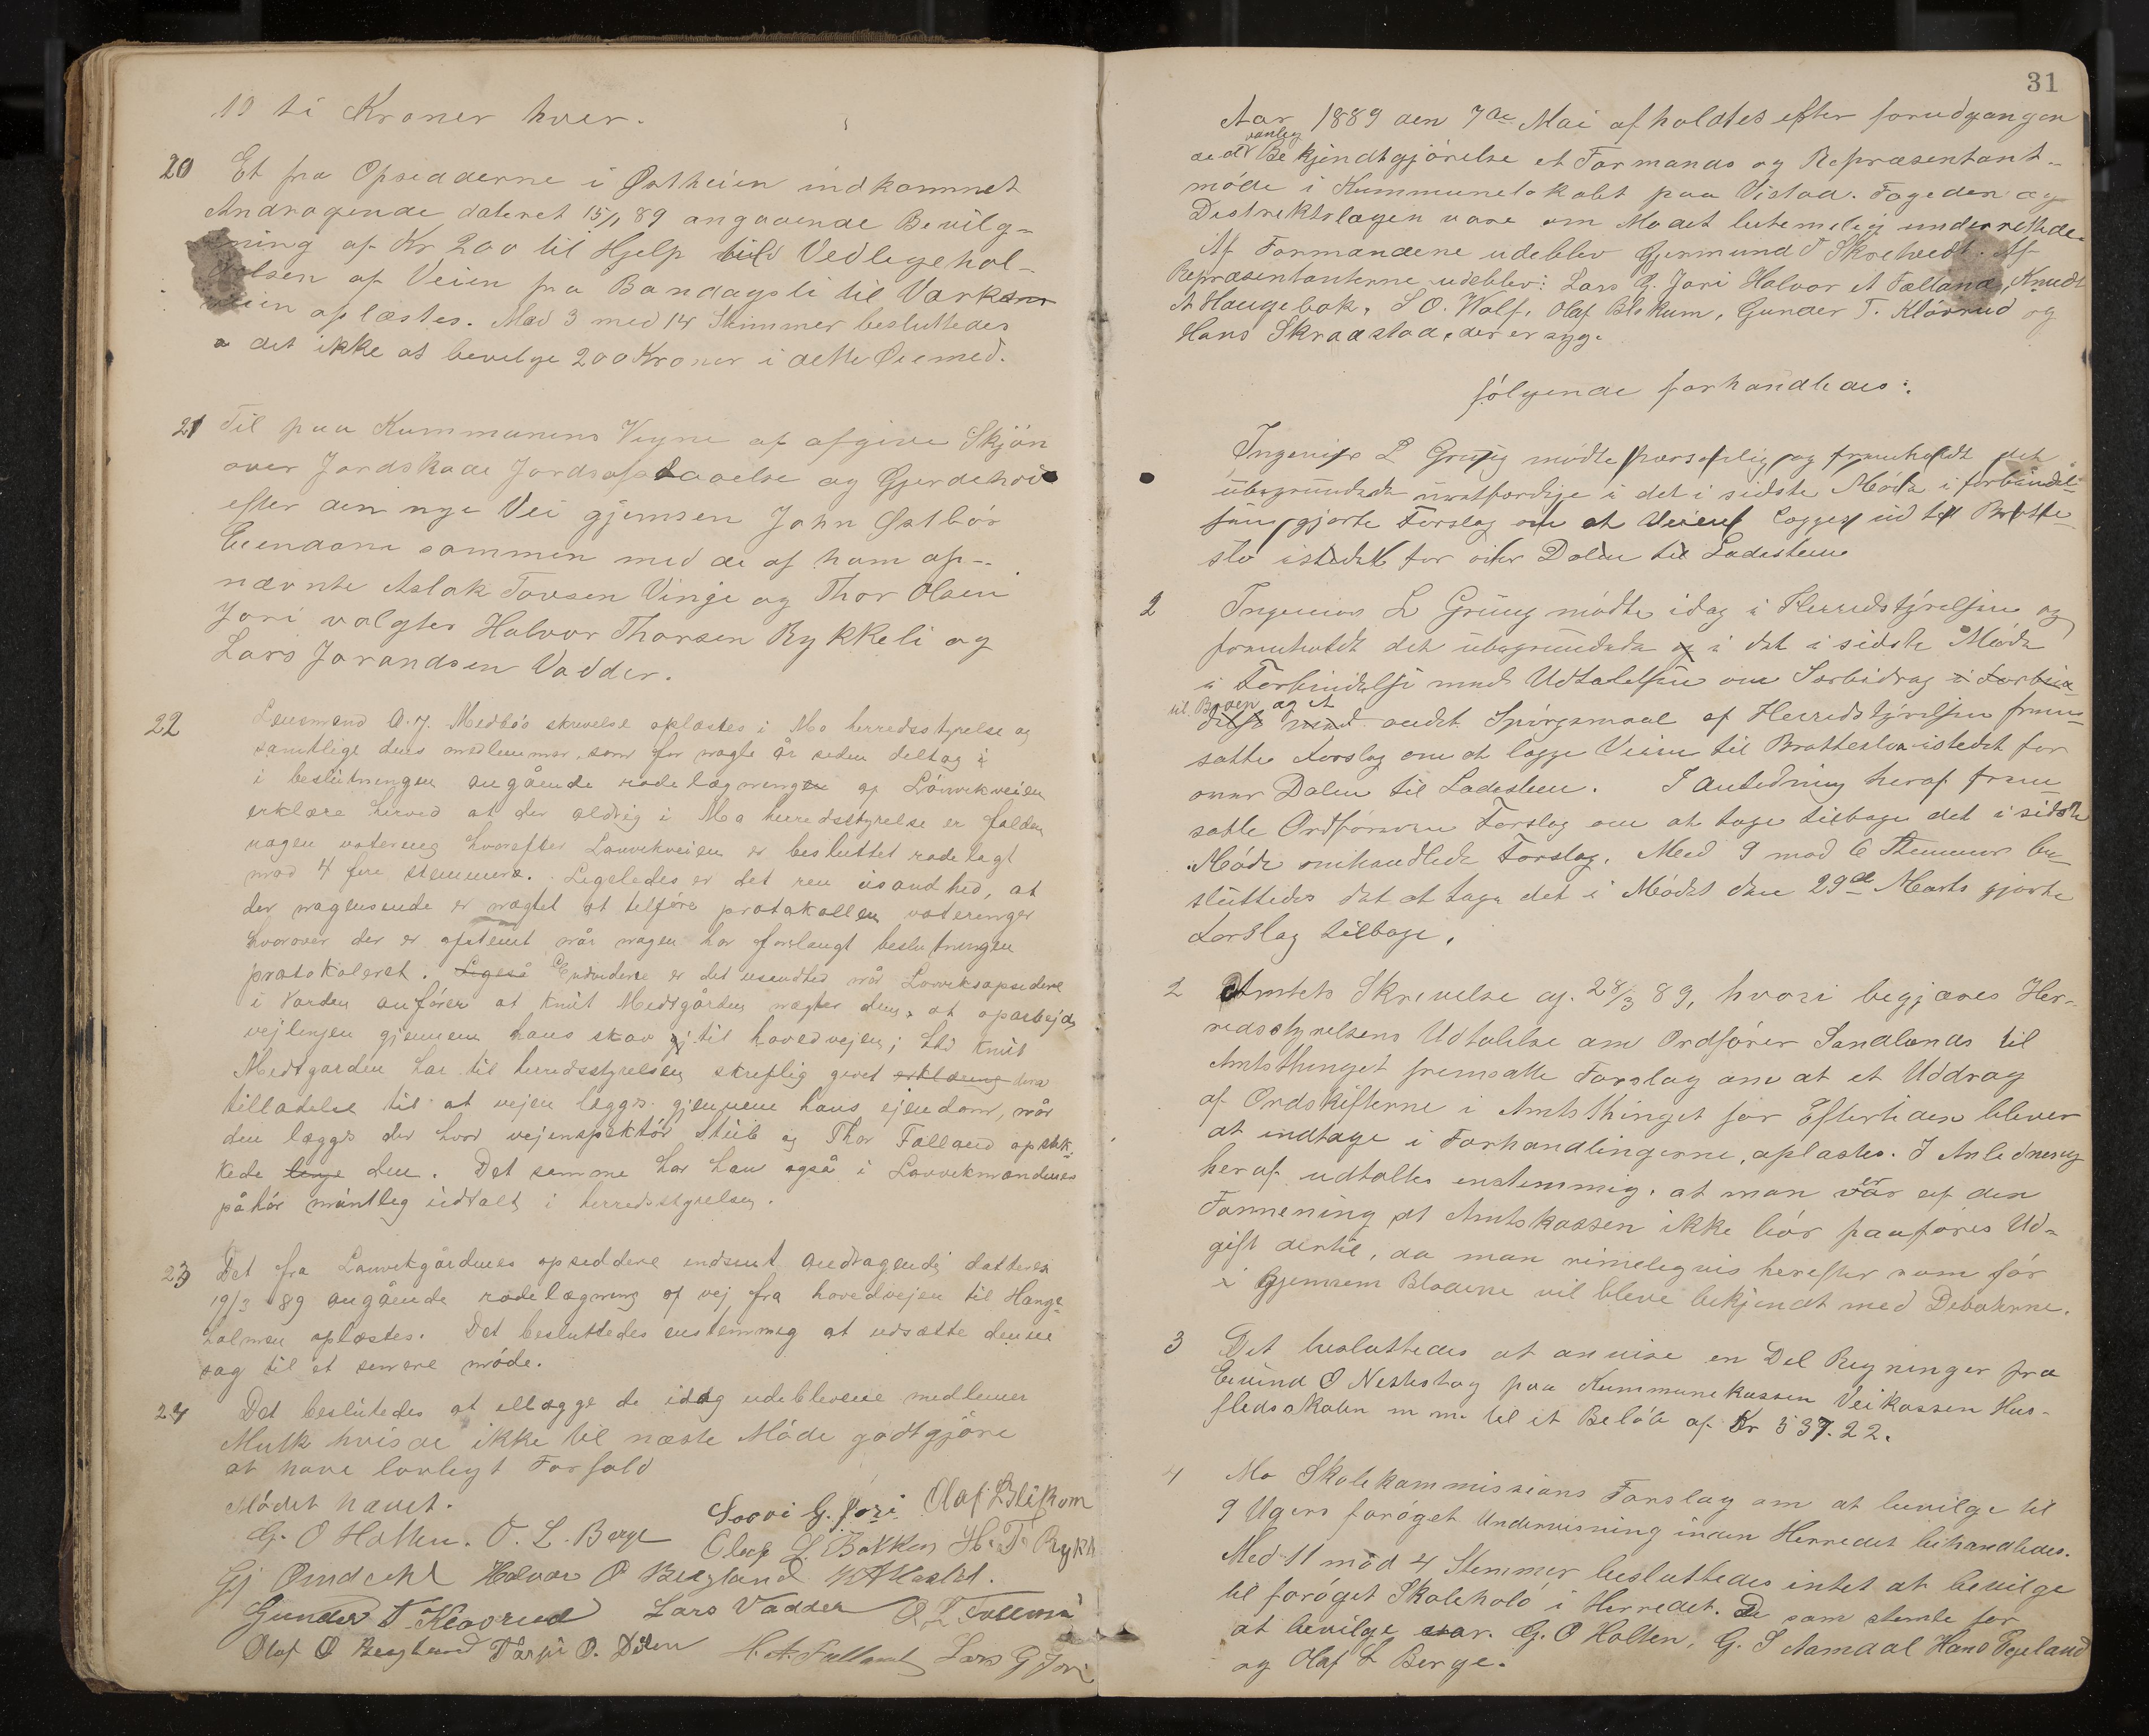 10 ti Kroner hver.
20 Et fra Opsidderne i Østheien indkommet
Andragende dateret 15/1 89 angaaende Bevilg-
ning af Kr 200 til Hjelp til Vedligehol-
delsen af Veien fra Bandagsli til
veien oplæstes. Mod 3 mod 14 Stemmer besluttedes
det ikke at bevilge 200 Kroner i dette Øiemed.
21 Til paa Kommunens Vegne at afgive Skjøn
over Jordskade Jordsopstaaelse og Gjerdehold
efter den nye Vei gjennem John Østbøs
Eiendom sammen med de af ham op-
nævnte Aslak Tovsen Vinje og Thor Olsen
Jori valgtes Halvor Thorsen Rykkeli og
Lars Jorandsen Vadder.
22 Lensmand A. J. Medbøs skrivelse oplæstes i Mo herredsstyrelse og
samtlige dens medlemmer, som for nogle år siden deltog i
i beslutningen angående rodelægningen af Lauvikveien
erklære herved at der aldrig i Mo herredsstyrelse er falden
nogen votering hvorefter Lauvikveien er besluttet rodelagt
mod 4 fire stemmer. Ligeledes er det ren usandhed, at
der nogensinde er nægtet at tilføre protokollen voteringer
hvorover der er afstemt når nogen har forlangt beslutningen
protokoleret. Ligeså Endvidere er det usandhed når Lauviksopsidere
i Varden anfører at Knut Medtgården nægter dem at oparbejde
vejlinjen gjennem hans skov til hovedvejen; thi Knut
Medtgarden har til herredsstyrelsen skriftlig givet erklæring
tilladelse til at vejen lægges gjennem hans ejendom, når
den lægges der hvor vejinspektør Stub og Thor Falland opstik-
kede linje den. Det samme har han også i Lauvikmændenes
påhør mundtlig udtalt i herredsstyrelsen.
23 Det fra Lauvikgårdenes opsiddere indsent andragende datteret
19/3 89 angående rodelægning af vej fra hovedvejen til Hauge-
holmen oplæstes. Det besluttedes enstemmig at udsætte denne
sag til et senere møde.
24 Det beslutedes at illægge de idag udeblevene medlemer
Mulk hvis de ikke til næste Møde godtgjøre
at have lovligt Forfald
Mødet hævet.
G. O Holten. O. L. Berge Sørvi G. Jori. Olaf Blikom
Olaf L. Bakken H. T. Rykk
Halvor O Bergland
Gunder T. Klovrud Lars Vadder
Olaf O Bergland Tarjei O. Dalen H. A. Falland Lars G Jori
31
Aar 1889 den 7de Mai afholdtes efter forudgangen
vanlig
de Bekjendtgjørelse et Formands og Repræsentant-
møde i Kummunelokalet paa Vistad. Fogeden og
Distriktslægen vare om Mødet betimelig underrettede.
Af Formændene udeblev Gjermund T Skretvedt. Af
Repræsentanterne udeblev: Lars G. Jori Halvor A Falland, Knudt
A Haugebak, S O. Wolf, Olaf Blekum, Gunder T. Klövrud og
Hans Skraastad, der er syg.
følgende forhandledes:
Ingeniør L Grung mødte personlig og fremholdt det
ubegrundede uretfærdige i det i sidste Møde i forbindel-
sen gjorte Forslag om at Veien lægges ud til Bratte-
slo istedet for over Dalen til Ladesteen
2 Ingeniør L Grung mødte idag i Herredstyrelsen og
fremholdt det ubegrundede og i det i sidste Møde
i Forbindelse med Udtalelsen om Særbidrag i Forbin-
til Broen og et
delse med andet Spørgsmaal af Herredstyrelsen frem-
satte Forslag om at lægge Veien til Bratteslo istedet for
over Dalen til Ladesteen. I Anledning heraf frem-
satte Ordføreren Forslag om at tage tilbage det i sidste
Møde omhandlede Forslag. Med 9 mod 6 Stemmer be-
sluttedes det at tage det i Mødet den 29de Marts gjorte
Forslag tilbage.
2 Amtets Skrivelse af 28/3 89, hvori begjæres Her-
redsstyrelsens Udtalelse om Ordfører Sandlands til
Amtsthinget fremsatte Forslag om at et Uddrag
af Ordskifterne i Amtsthinget for Eftertiden bliver
at indtage i Forhandlingerne, oplæstes. I Anledning
heraf udtaltes enstemmig, at man var er af den
Formening at Amtskassen ikke bør paaføres Ud-
gift dertil, da man rimeligvis herefter som før
i gjennem Bladene vil blive bekjendt med Debaterne.
3 Det besluttedes at anvise en Del Regninger fra
Eivind O Nesteslog paa Kummunekassen Veikassen Hus-
flidsskolen m m til et Beløb af Kr 537.22.
4 Mo Skolekommissions Forslag om at bevilge til
9 Ugers forøget Undervisning inden Herredet behandledes.
Med 11 mod 4 Stemmer besluttedes intet at bevilge
til forøget Skolehold i Herredet. De som stemte for
at bevilge var. G. O Holten, G. S Aamdal Hans Egeland
og Olaf L Berge.